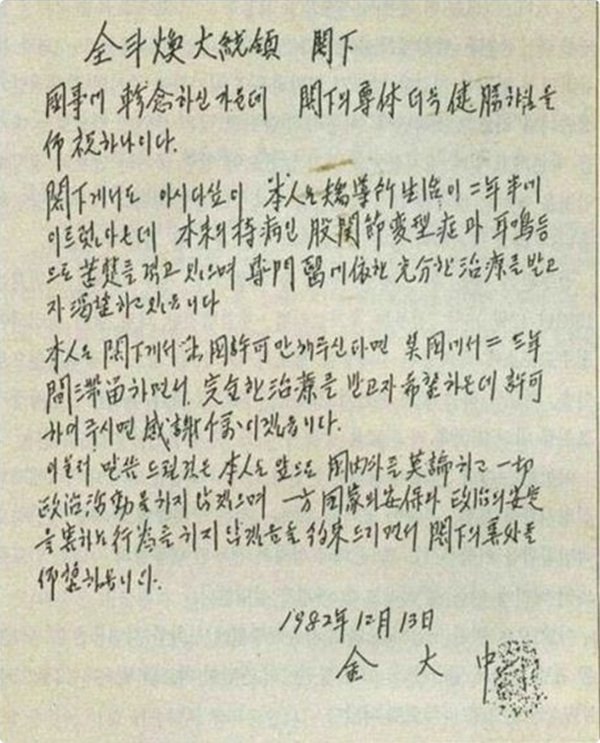 全斗煥大統領 閣下
國事에 軫念하신가운데 閣下의 尊体 더욱 健勝하심을
仰祝하나이다.
閣下께서도 아시다싶이 本人은 矯導所生活이 二年半에
이르렀아온데 本來의 持病인 股關節変型症과 耳鳴等
으로 苦楚를 격고 있으며 専門醫에 依한 充分한 治療를 받고
자 渴望하고 있읍니다
本人은 閣下께서 出國許可만 해주신다면 美國에서 二 三年
間 滯留하면서, 完全한 治療를 받고자 希望하온데 許可
하여주시면 感謝千萬이겠읍니다.
아울러 말씀 드릴것은 本人은 앞으로 國內外를 莫論하고 一切
政治活動을 하지 않겠으며 一方 國家의 安保와 政治의 安定
을 害하는 行為를 하지 않겠음을 約束드리면서 閣下의 善处를
仰望하옵니다.
1982年 12月 13日
金 大 中